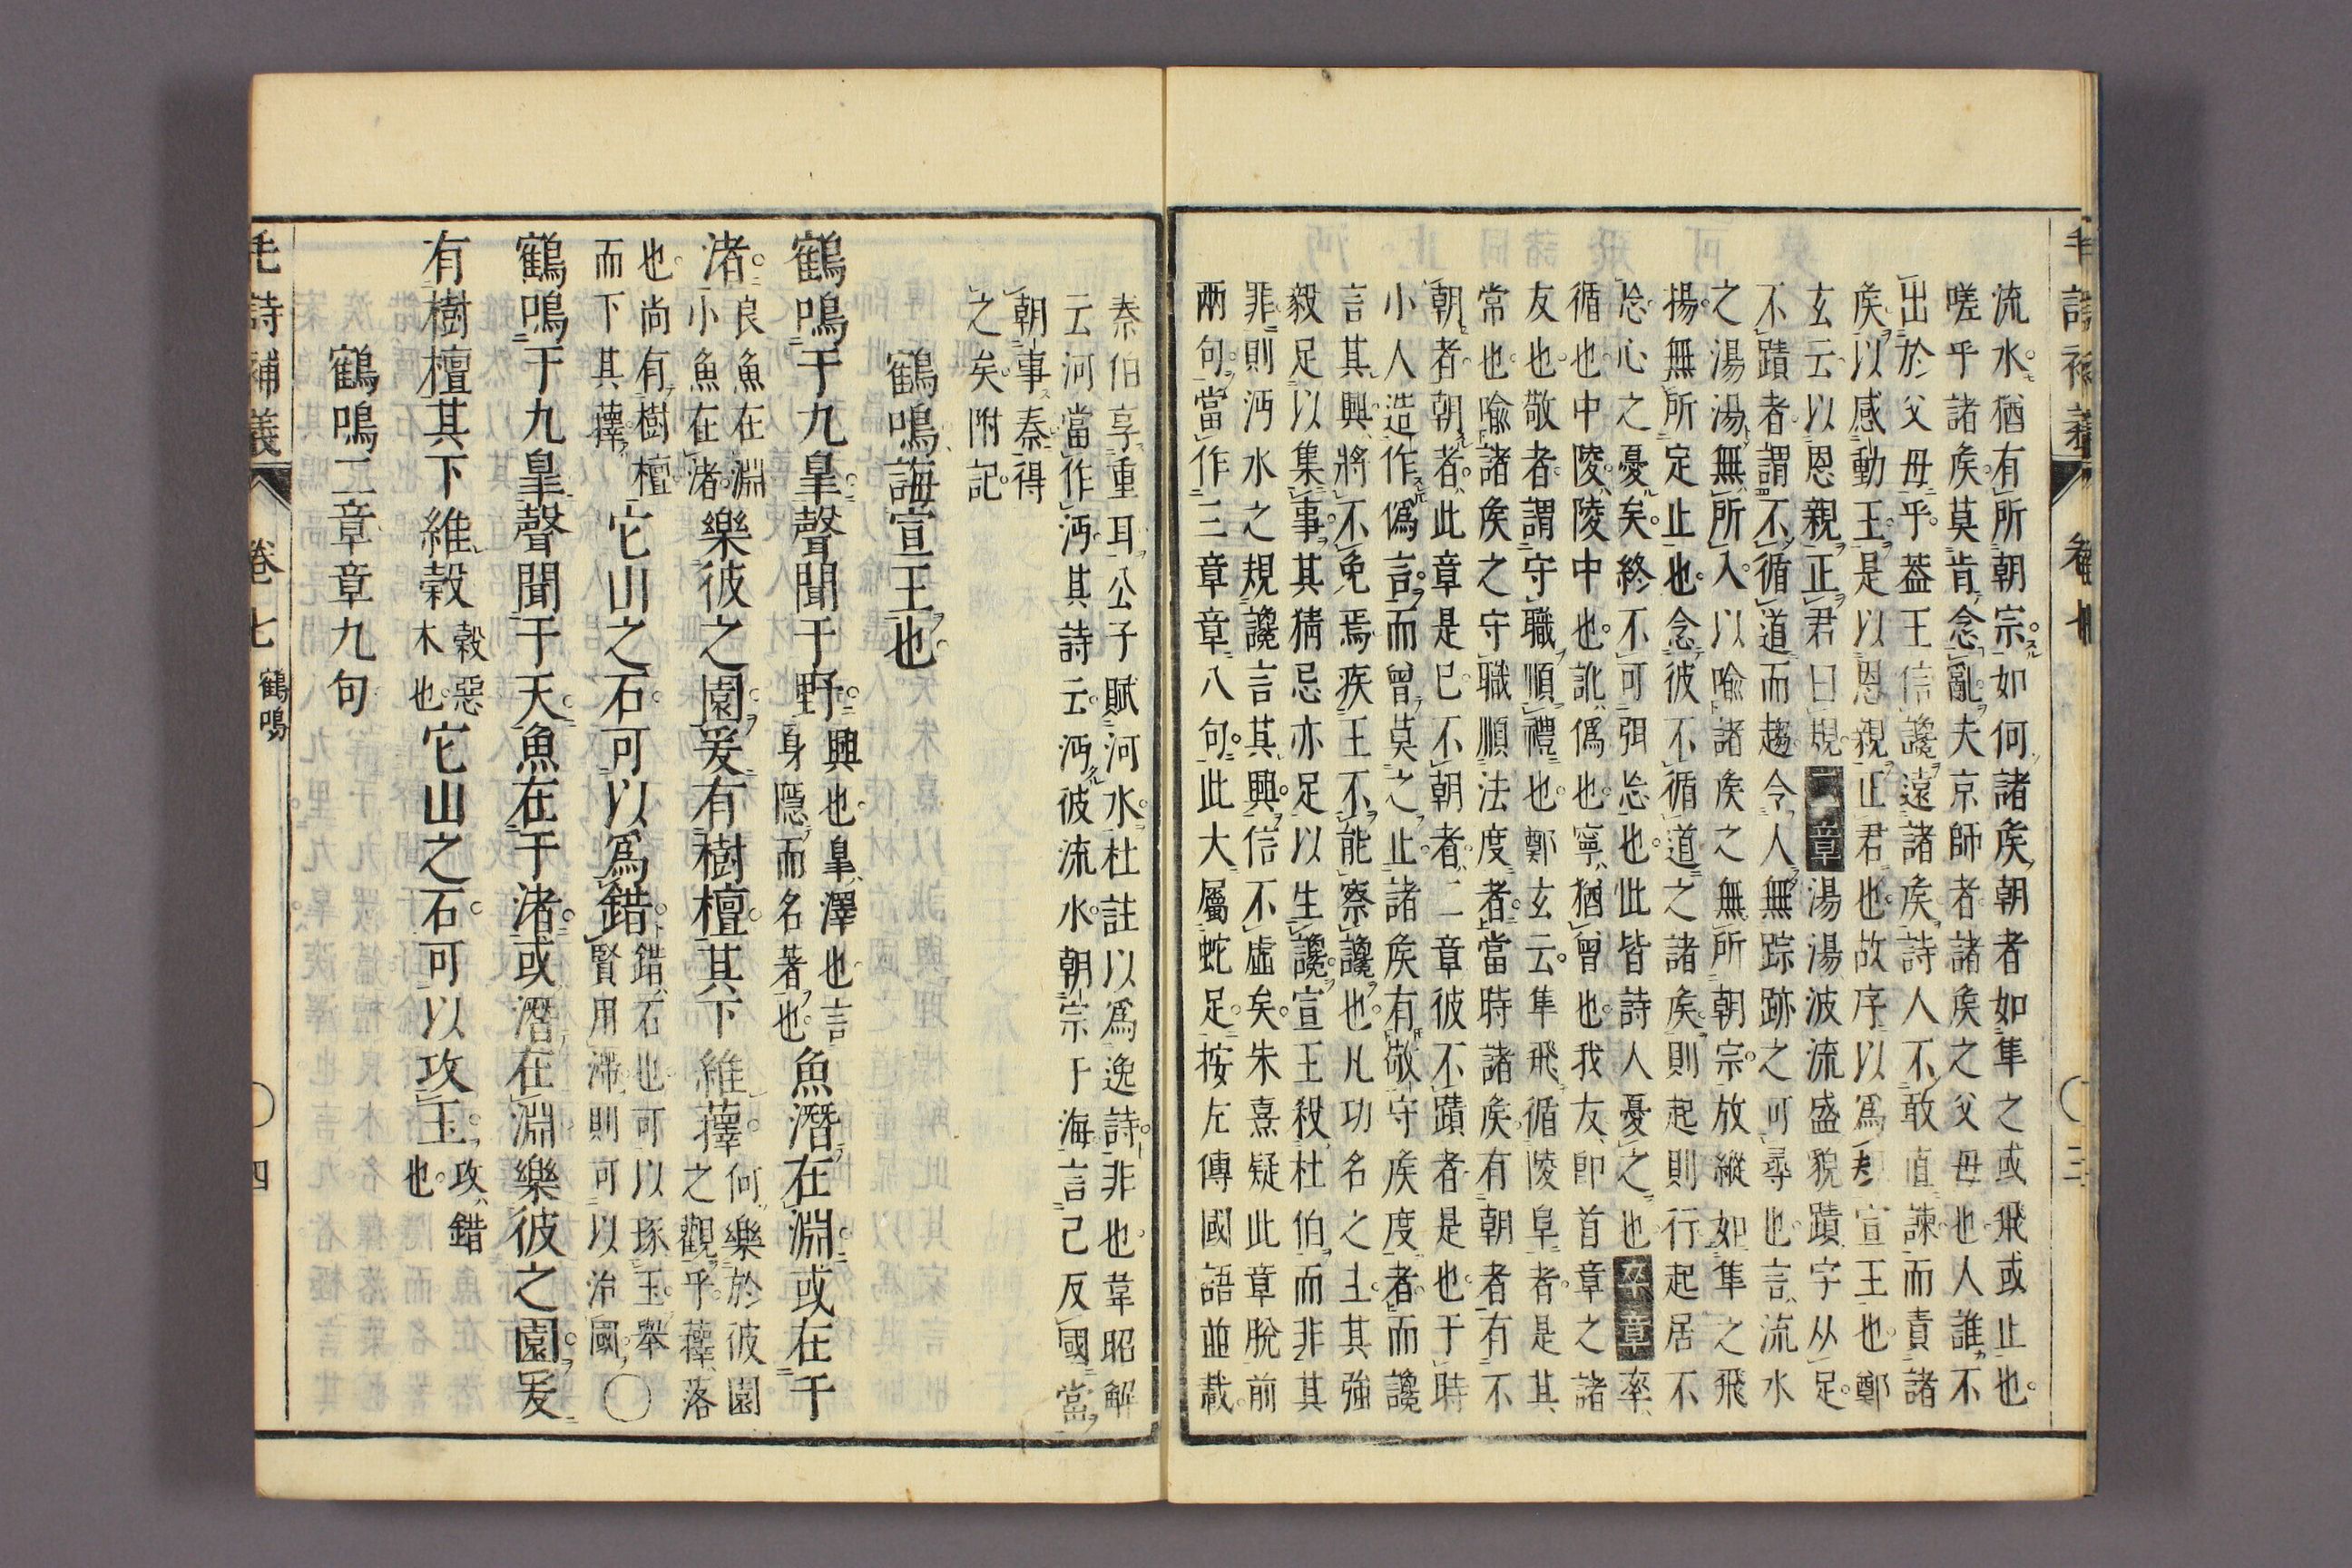 毛詩補義 卷七 三
流水猶有所朝宗如何諸矦朝者如隼之或飛或止也
嗟乎諸矦莫肯念亂夫京師者諸矦之父母也人誰不
出於父母乎葢王信讒遠諸矦詩人不敢直諫而責諸
矦以感動王是以恩親正君也故序以爲規宣王也鄭
玄云以恩親正君曰規二章湯湯波流盛貌蹟字从足
不蹟者謂不循道而趨令人無踪跡之可尋也言流水
之湯湯無所入以喩諸矦之無所朝宗放縱如隼之飛
揚無所定止也念彼不循道之諸矦則起則行起居不
忘心之憂矣終不可弭忘也此皆詩人憂之也卒章率
循也中陵陵中也訛僞也寧猶曾也我友卽首章之諸
友也敬者謂守職順禮也鄭玄云隼飛循陵阜者是其
常也喩諸矦之守職順法度者當時諸矦有朝者有不
朝者朝者此章是巳不朝者二章彼不蹟者是也于時
小人造作僞言而曾莫之止諸矦有敬守矦度者而讒
言其興將不免焉疾王不能察讒也凡功名之主其強
毅足以集事其猜忌亦足以生讒宣王殺杜伯而非其
罪則沔水之規讒言其興信不虛矣朱熹疑此章脫前
兩句當作三章章八句此大屬蛇足按左傳國語並載
秦伯享重耳公子賦河水杜註以爲逸詩非也韋昭解
云河當作沔其詩云沔彼流水朝宗于海言己反國當
朝事秦得
之矣附記
鶴鳴誨宣王也
鶴鳴于九皐聲聞于野興也皐澤也言身隱而名著也魚潛在淵或在于
渚良魚在淵小魚在渚樂彼之園爰有樹檀其下維蘀何樂於彼園之觀乎蘀落
也尚有樹檀而下其蘀它山之石可以爲錯錯石也可以琢玉舉賢用滯則可以治國〇
鶴鳴于九皐聲聞于天魚在于渚或潛在淵樂彼之園爰
有樹檀其下維榖榖惡木也它山之石可以攻玉攻錯也
鶴鳴二章章九句
毛詩補義 卷七 鶴鳴 四